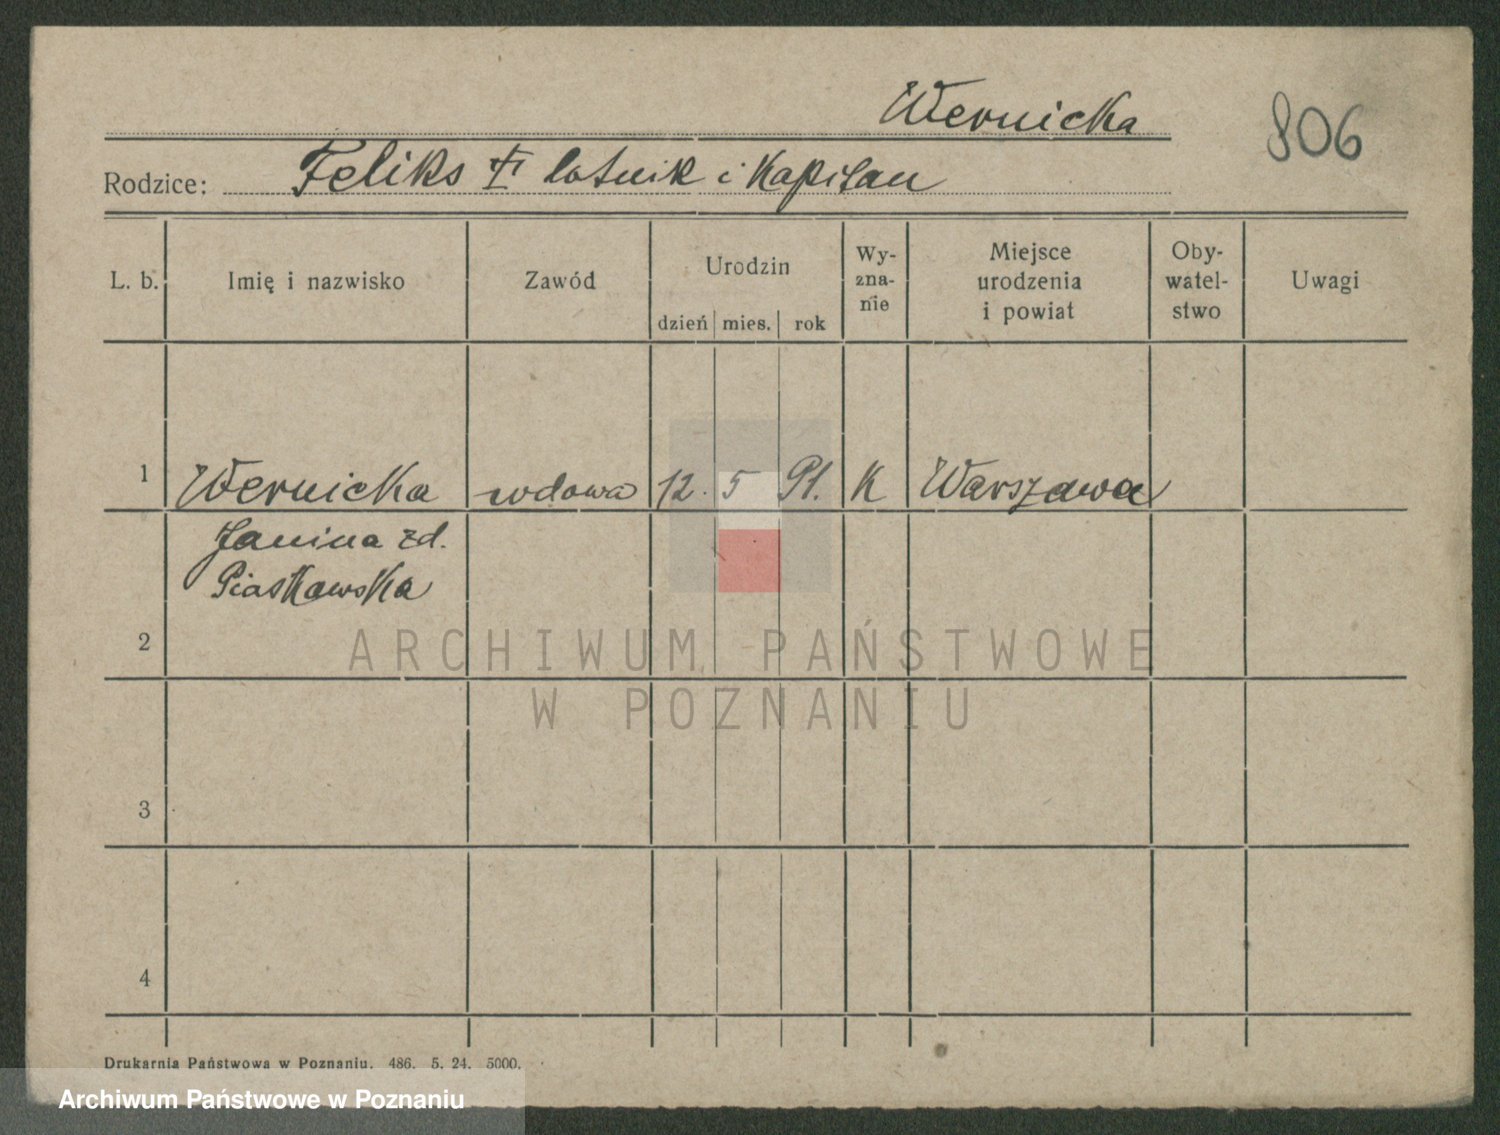 Wernicka
806
Rodzice: Feliks † lotnik i Kapitan
L. b. Imię i nazwisko Zawód Urodzin dzień mies. rok Wy-zna-nie Miejsce urodzenia i powiat Oby-watel-stwo Uwagi
1 Wernicka wdowa 12. 5 91. K Warszawa
Janina zd.
Piaskowska
2
ARCHIWUM PAŃSTWOWE
W POZNANIU
3
4
Drukarnia Państwowa w Poznaniu. 486. 5. 24. 5000.
Archiwum Państwowe w Poznaniu